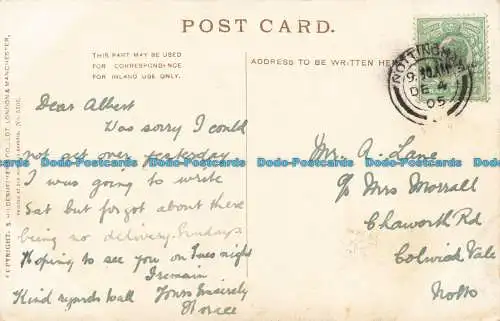 POST CARD.
THIS PART MAY BE USED
FOR CORRESPONDENCE
FOR INLAND USE ONLY.
ADDRESS TO BE WRITTEN HERE
NOTTINGHAM
DE 4
05
Dear Albert
Was sorry I could
not get over yesterday
I was going to write
Sat but forgot about there
being no delivery Sundays
Hoping to see you on Tues night
I remain
Kind regards to all Yours Sincerely
Horace
Mr. A. Lane
c/o Mrs Morrall
Chaworth Rd
Colwick Vale
Notts
COPYRIGHT. S. HILDESHEIMER & CO., LTD. LONDON & MANCHESTER.
Dodo-Postcards Dodo-Postcards Dodo-Postcards Dodo-Postcards Dodo-Postcards
Dodo-Postcards Dodo-Postcards Dodo-Postcards Dodo-Postcards Dodo-Postcards